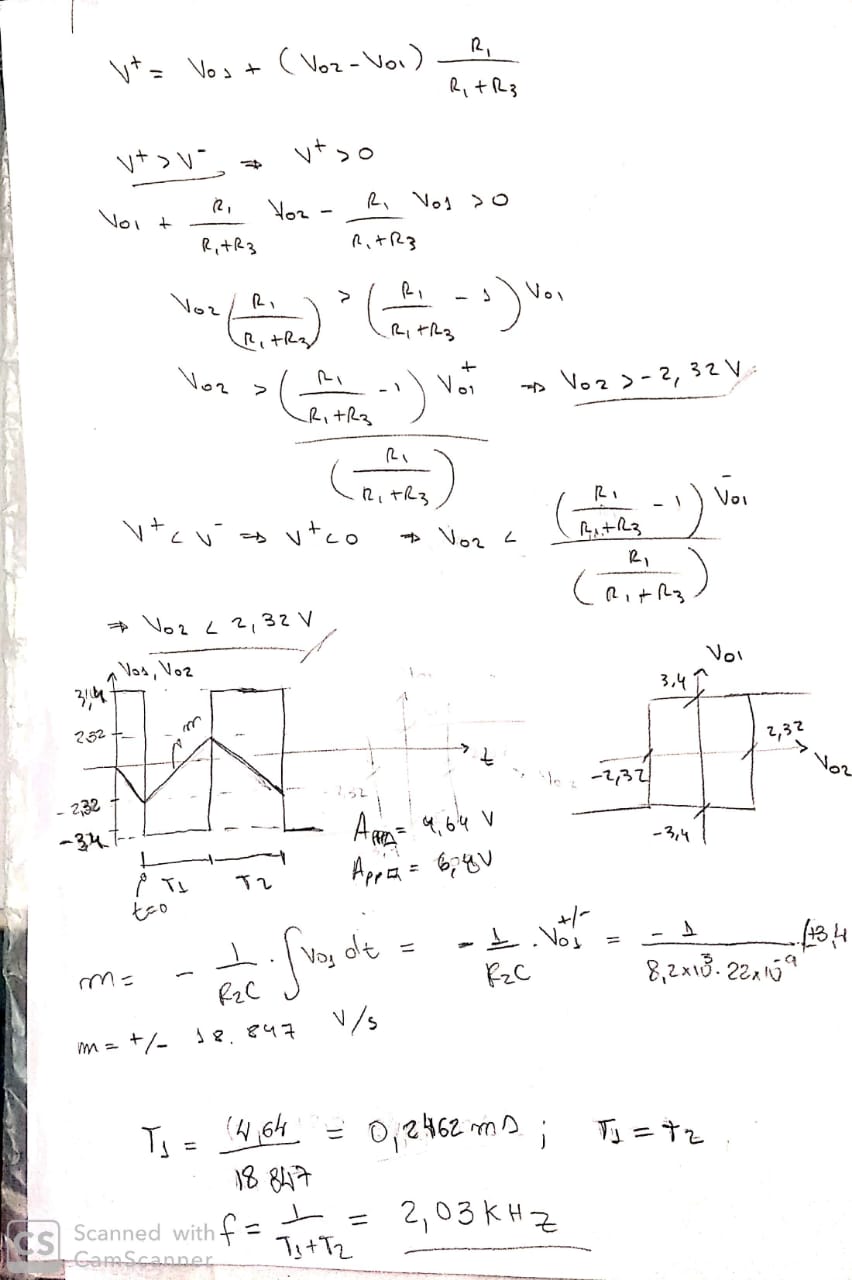 V⁺ = Vo1 + (Vo2 - Vo1) R1 / (R1 + R3)
V⁺ > V⁻ ⇒ V⁺ > 0
Vo1 + R1 / (R1 + R3) Vo2 - R1 / (R1 + R3) Vo1 > 0
Vo2 (R1 / (R1 + R3)) > (R1 / (R1 + R3) - 1) Vo1
Vo2 > (R1 / (R1 + R3) - 1) Vo1⁺ / (R1 / (R1 + R3)) ⇒ Vo2 > -2,32 V
V⁺ < V⁻ ⇒ V⁺ < 0 ⇒ Vo2 < (R1 / (R1 + R3) - 1) Vo1⁻ / (R1 / (R1 + R3))
⇒ Vo2 < 2,32 V
Vo1, Vo2
3,4
2,32
m
t
-2,32
-3,4
T1
T2
t=0
App△ = 4,64 V
App□ = 6,8 V
Vo1
3,4
2,32
Vo2
-2,32
-3,4
m = - 1 / R2C . ∫ Vo1 dt = - 1 / R2C . Vo1⁺/⁻ = - 1 / 8,2x10³ . 22x10⁻⁹ . (±3,4
m = +/- 18.847 V/s
T1 = 4,64 / 18 847 = 0,2462 ms ; T1 = T2
f = 1 / (T1 + T2) = 2,03 KHz
CS Scanned with
CamScanner